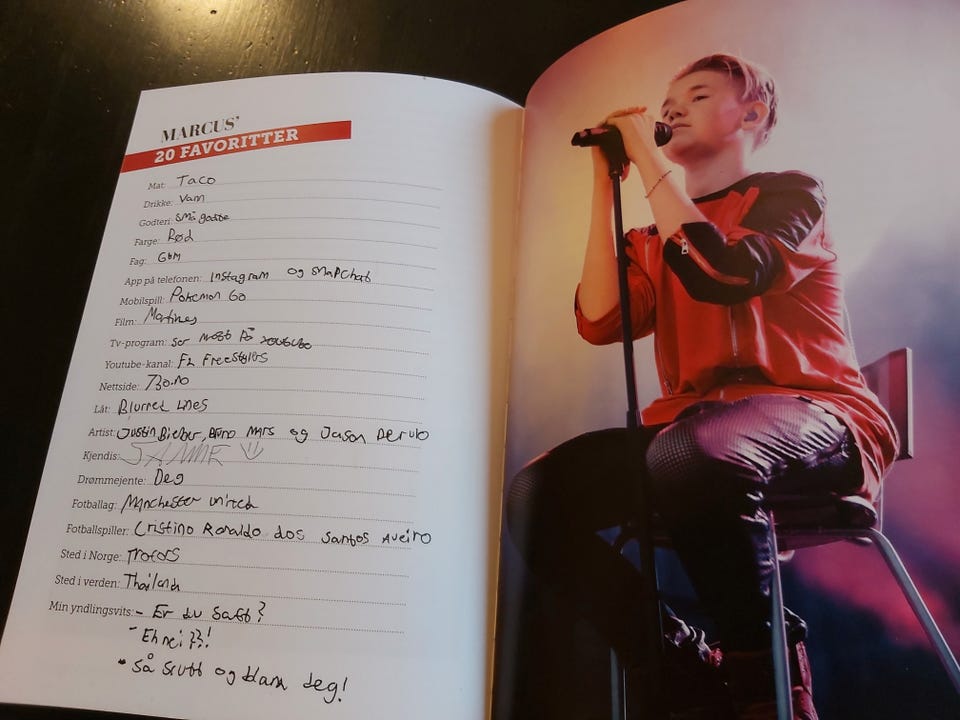 MARCUS'
20 FAVORITTER
Mat: Taco
Drikke: Vann
Godteri: Små godte
Farge: Rød
Fag: Gym
App på telefonen: Instagram og Snapchat
Mobilspill: Pokemon Go
Film:
Tv-program: Ser mest på youtube
Youtube-kanal: F2 Freestylers
Nettside: 730.no
Låt: Blurred Lines
Artist: Justin Bieber, Bruno Mars og Jason Derulo
Kjendis: SAMME
Drømmejente: Deg
Fotballag: Manchester united
Fotballspiller: Cristino Ronaldo dos Santos Aveiro
Sted i Norge: Trofors
Sted i verden: Thailand
Min yndlingsvits: - Er du Saft?
- Eh nei??!
- Så slutt og bland deg!